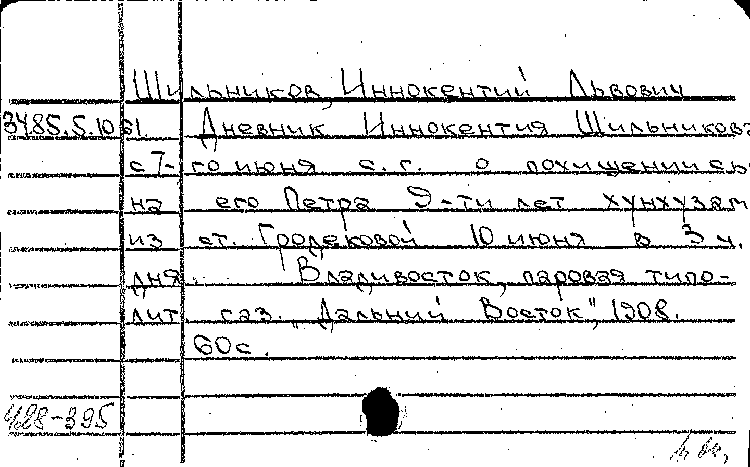 Шильников, Иннокентий Львович
3485.5.10.61. Дневник Иннокентия Шильникова
с 7-го июня с.г. о похищении сы-
на его Петра 9-ти лет хунхузам
из ст. Гродековой 10 июня в 3 ч.
дня. Владивосток, паровая типо-
лит газ. "Дальний Восток", 1908.
60с.
428-395